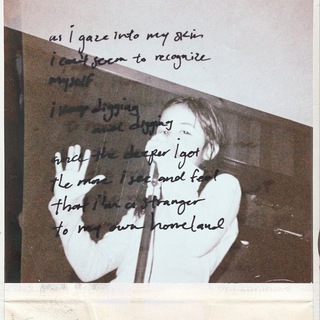 as i gaze into my skin
i can't seem to recognize
myself
i keep digging
and digging
the deeper i get
the more i see and feel
that i'm a stranger
to my own homeland